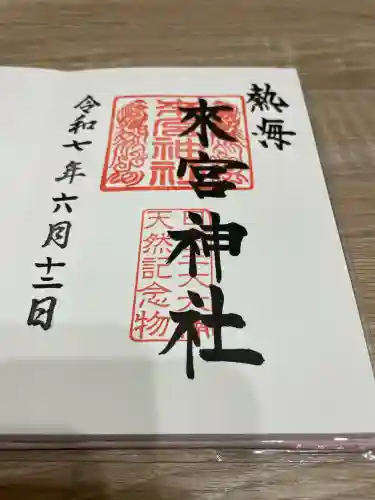 熱海
來宮神社
來宮神社
天然記念物
令和七年六月十二日